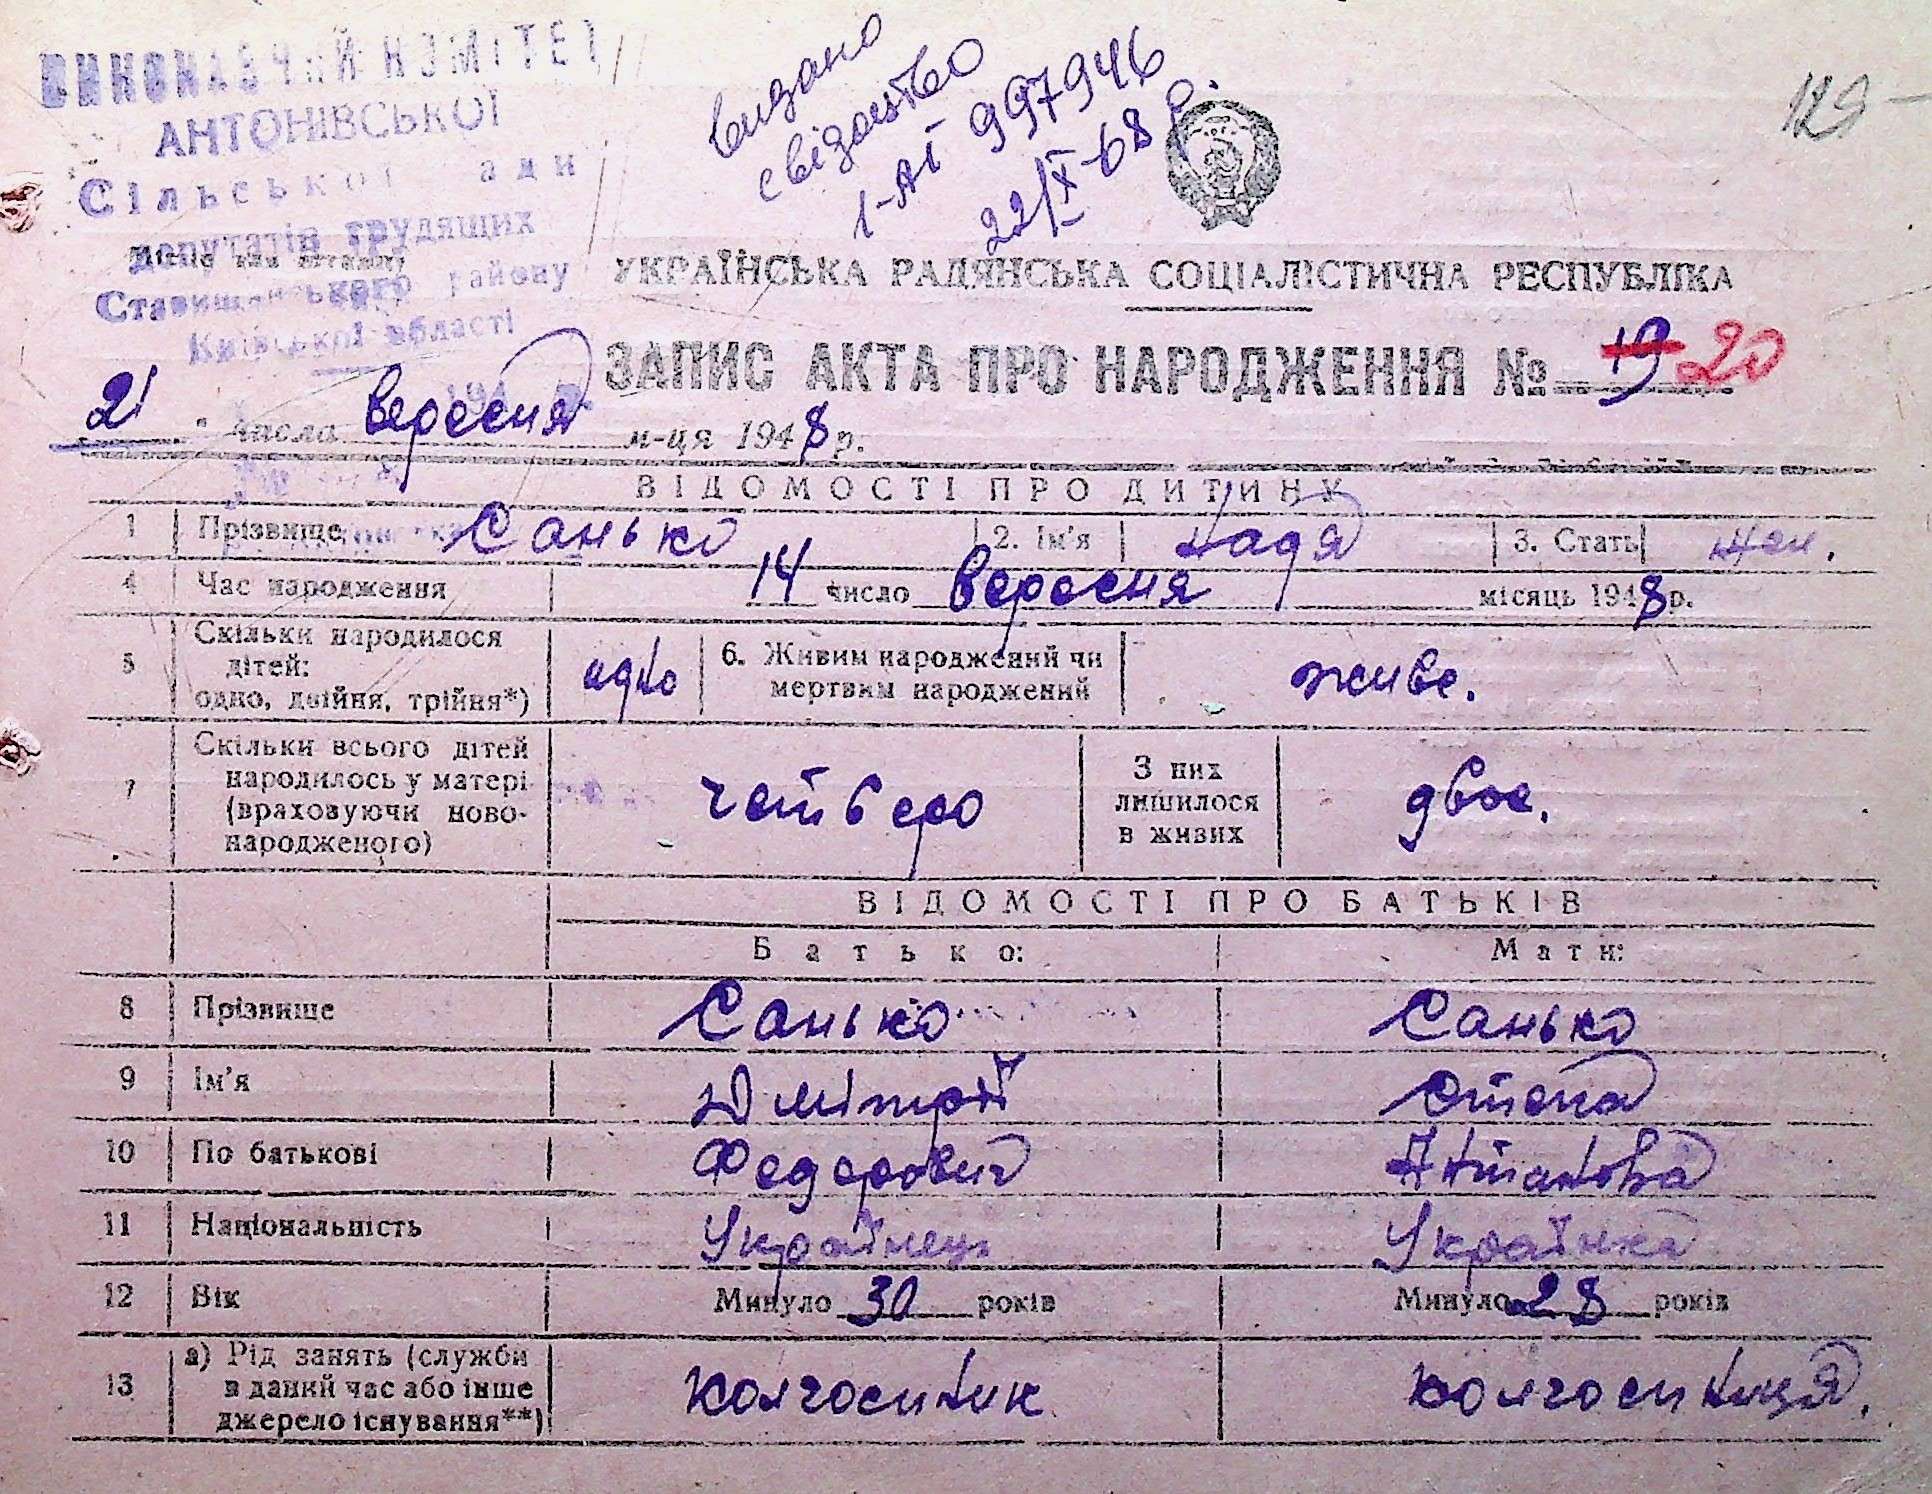 ВИКОНАВЧИЙ КОМІТЕТ
АНТОНІВСЬКОЇ
Сільської ади
депутатів трудящих
Ставищанського району
Київської області
видано
свідоцтво
І-АІ 997946
22/X-68 р.
129
УКРАЇНСЬКА РАДЯНСЬКА СОЦІАЛІСТИЧНА РЕСПУБЛІКА
ЗАПИС АКТА ПРО НАРОДЖЕННЯ № 19 20
21 числа вересня м-ця 1948 р.
ВІДОМОСТІ ПРО ДИТИНУ
1 Прізвище Санько 2. Ім'я Надя 3. Стать жен.
4 Час народження 14 число вересня місяць 1948 р.
5 Скільки народилося
дітей:
одно, двійня, трійня*) одно 6. Живим народжений чи
мертвим народжений живе.
7 Скільки всього дітей
народилось у матері
(враховуючи ново-
народженого) четверо З них
лишилося
в живих двое.
ВІДОМОСТІ ПРО БАТЬКІВ
Батько: Мати:
8 Прізвище Санько Санько
9 Ім'я Дмітрій
10 По батькові Федорович
11 Національність Українець Українка
12 Вік Минуло 30 років Минуло 28 років
13 а) Рід занять (служби
в даний час або інше
джерело існування**) колгоспник колгоспниця.